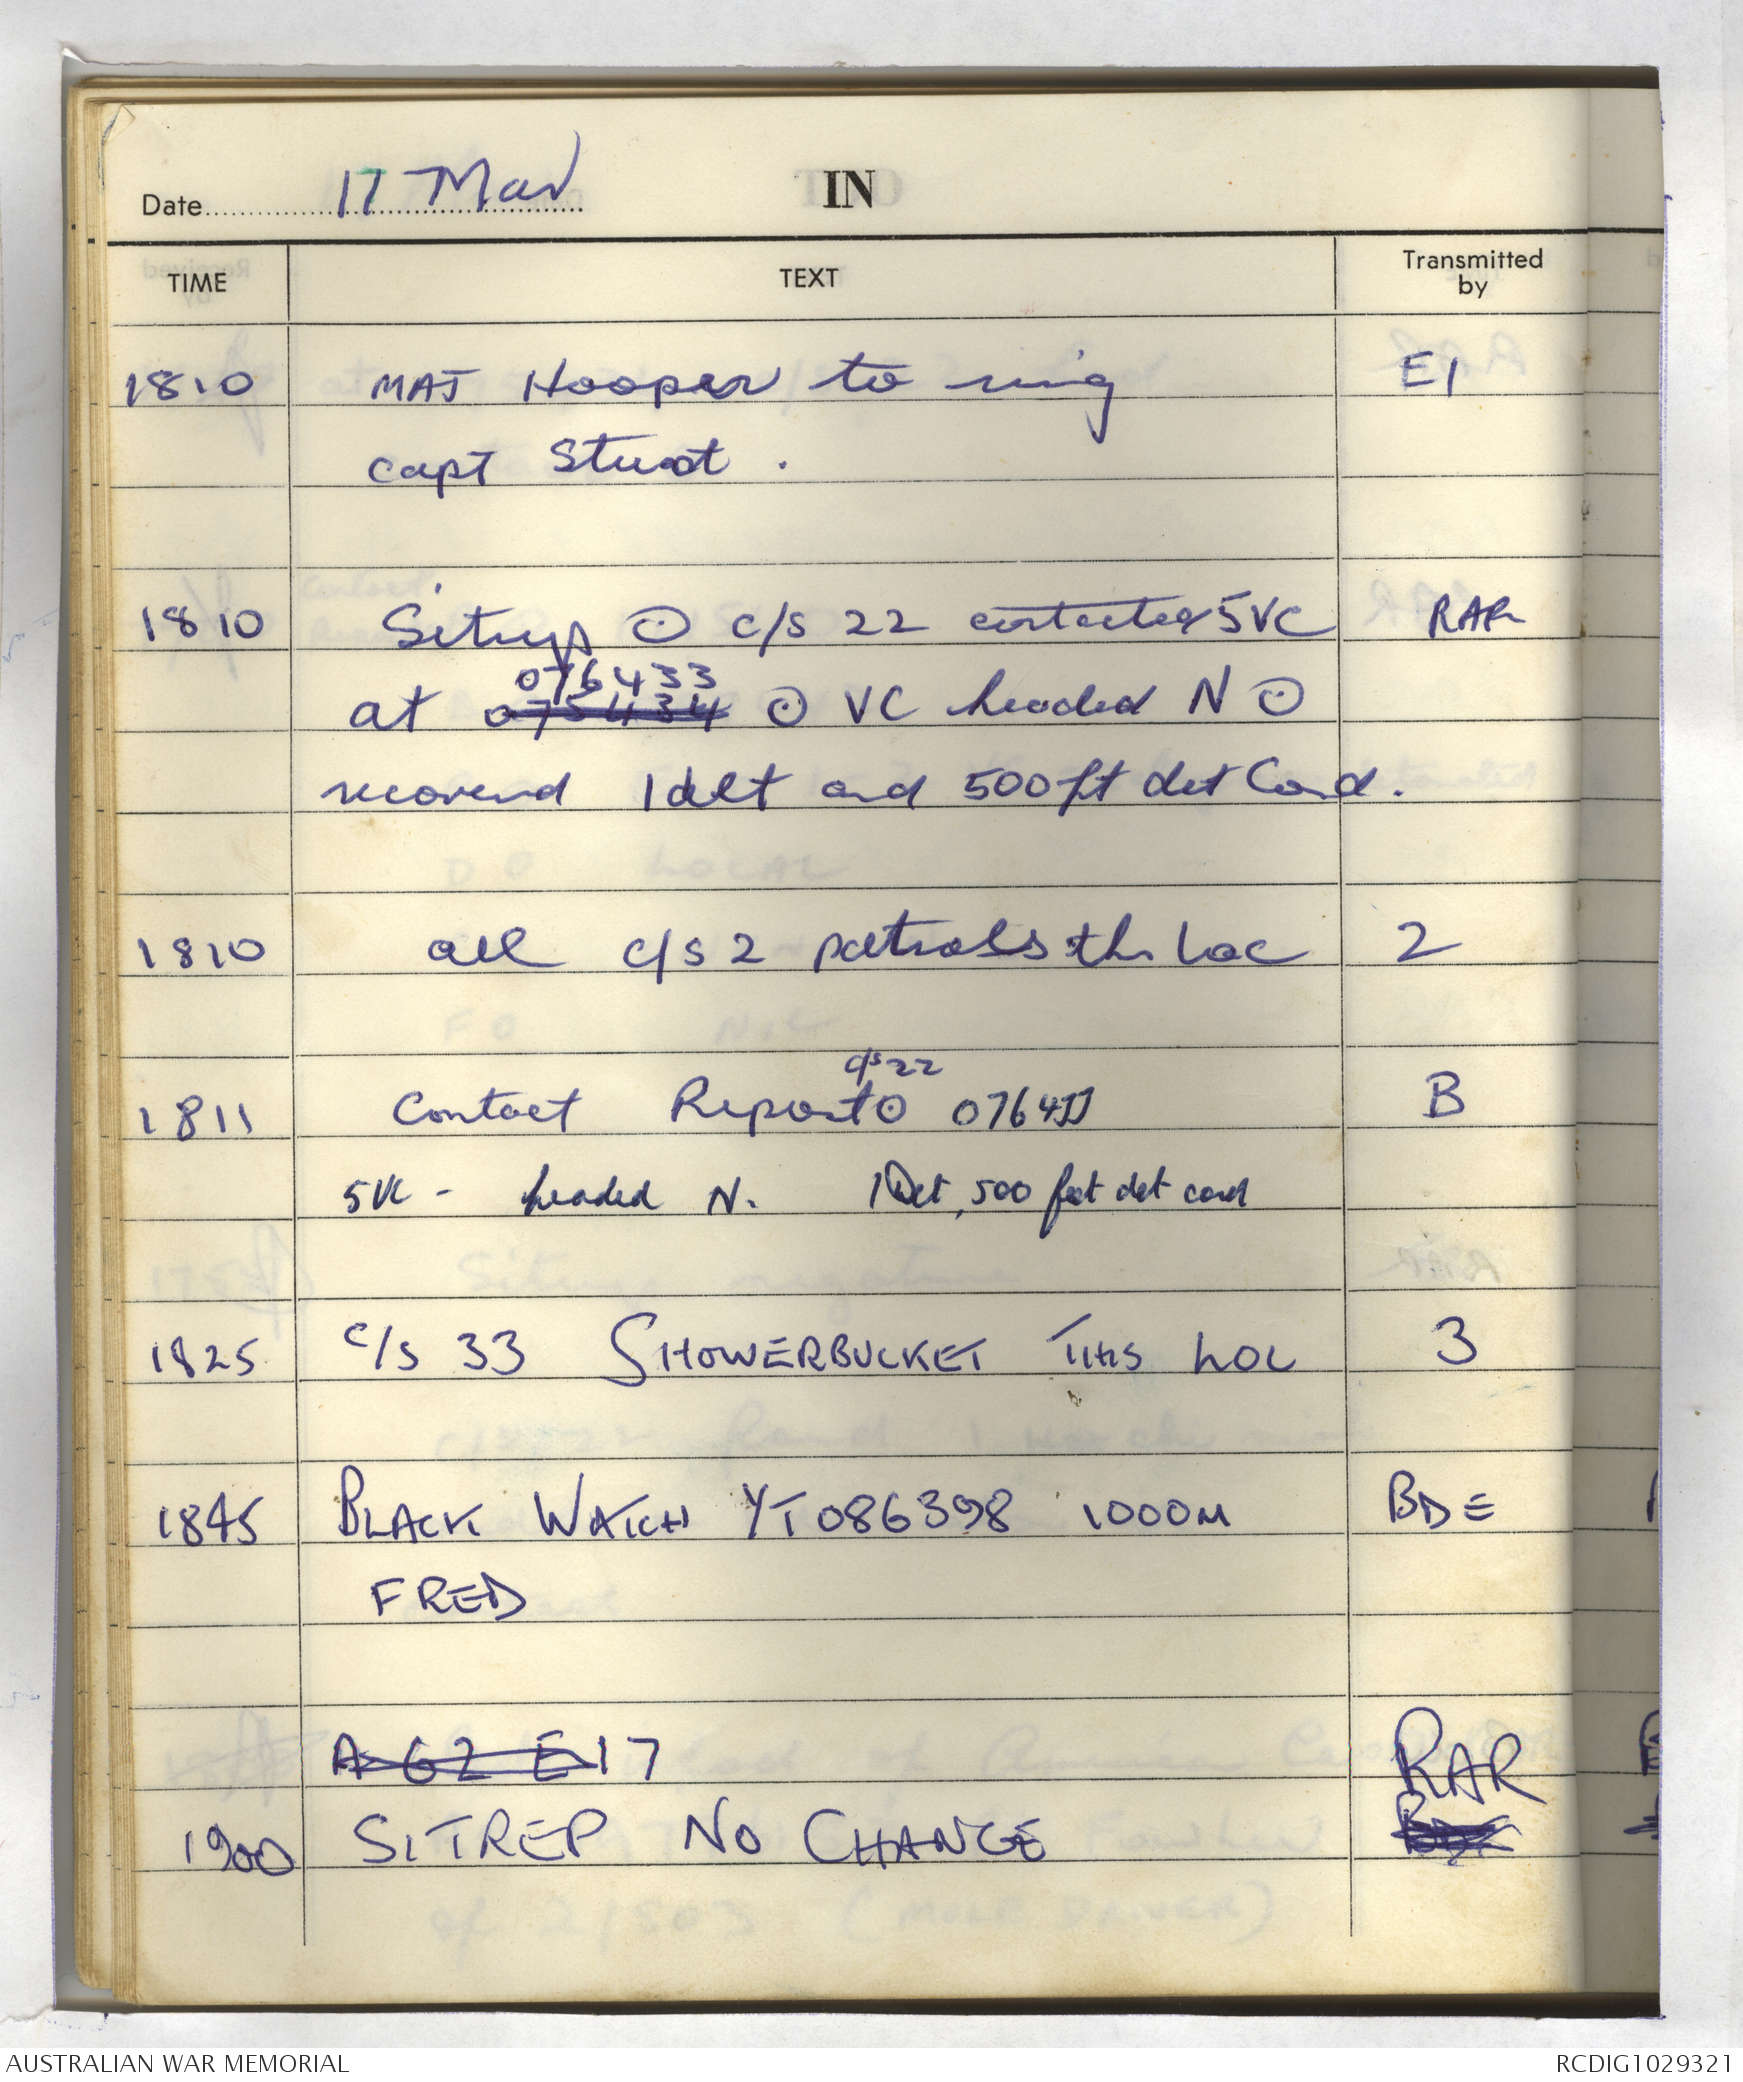 Date 17 Mar IN
TIME TEXT Transmitted by
1810 MAJ Hooper to ring E1
capt Stuart .
1810 Sitrep ⊙ c/s 22 contacted 5VC RAR
076433
at 075434 ⊙ VC headed N ⊙
recovered 1 det and 500ft det Cord.
1810 all c/s 2 patrols this loc 2
c/s 22
1811 Contact Report ⊙ 076433 B
5VC - headed N. 1 Det, 500 feet det cord
1825 c/s 33 SHOWERBUCKET THIS LOC 3
1845 BLACK WATCH YT086398 1000M BDE
FRED
A G2 E17 RAR
1900 SITREP NO CHANGE
AUSTRALIAN WAR MEMORIAL RCDIG1029321